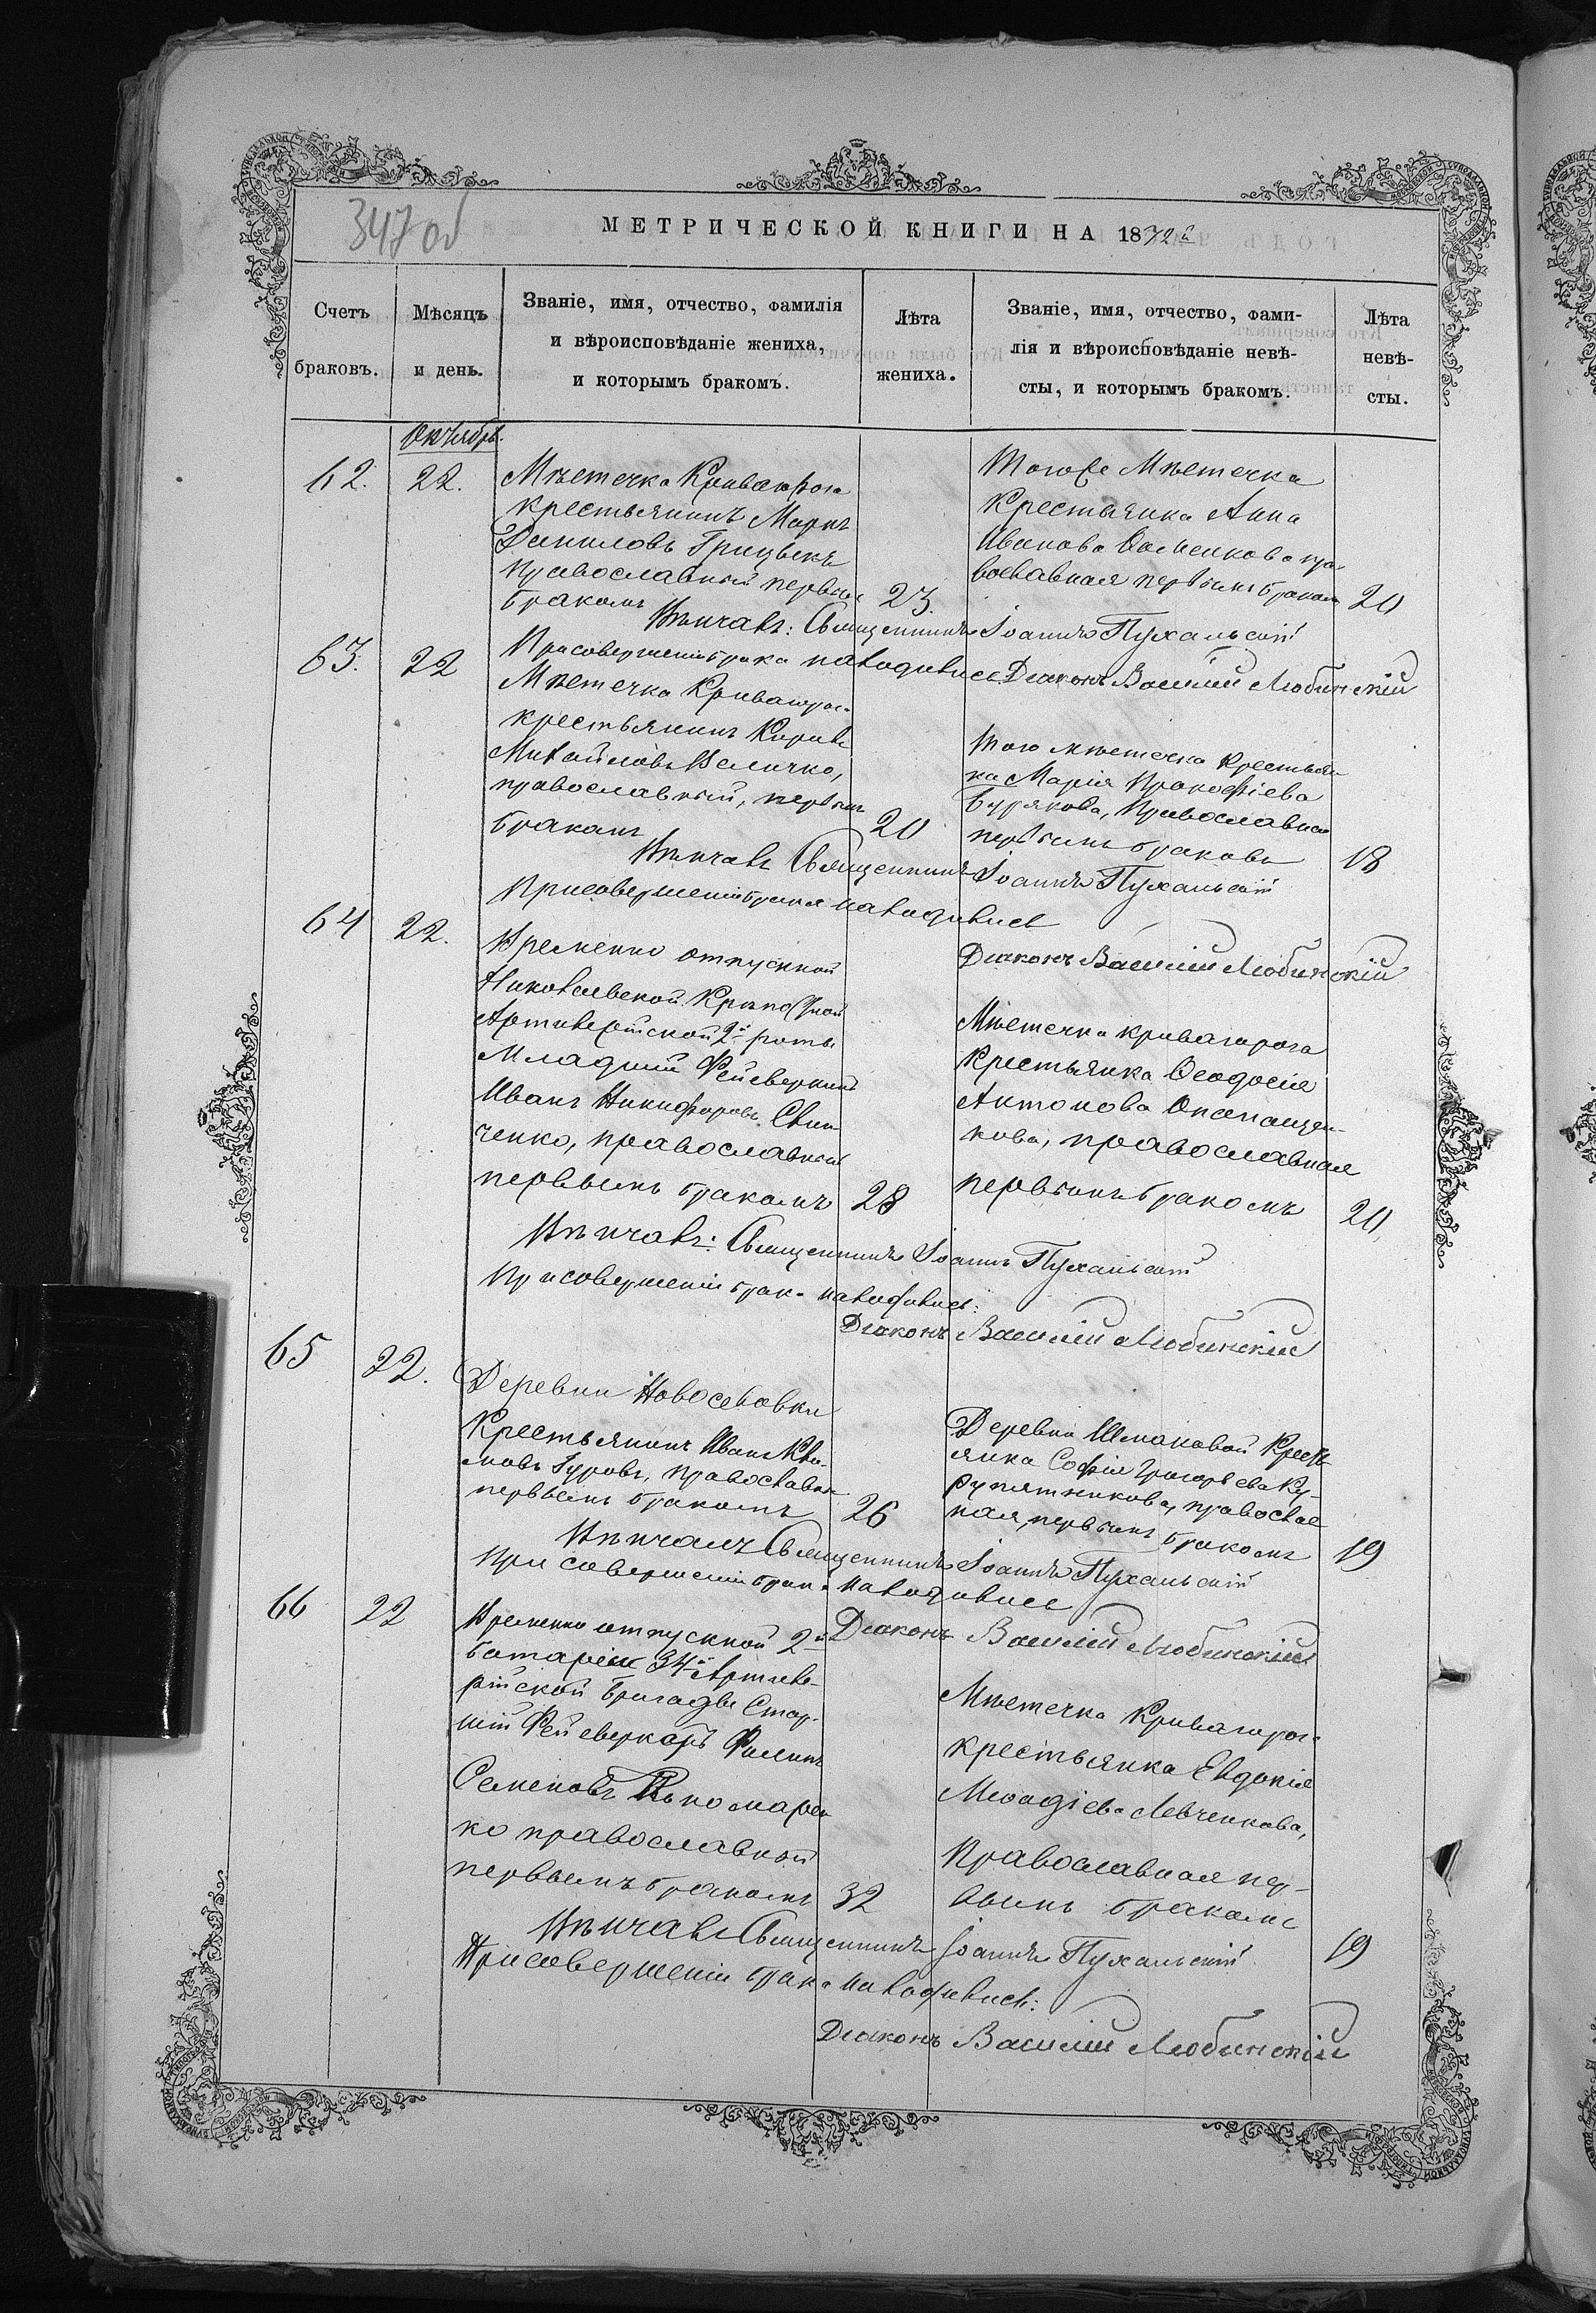 347 об
МЕТРИЧЕСКОЙ КНИГИ НА 1872 г.
Счетъ браковъ.
Мѣсяцъ и день.
Званіе, имя, отчество, фамилія
и вѣроисповѣданіе жениха,
и которымъ бракомъ.
Лѣта
жениха.
Званіе, имя, отчество, фами-
лія и вѣроисповѣданіе невѣ-
сты, и которымъ бракомъ.
Лѣта
невѣ-
сты.
Октябрь.
62.
22.
Мѣстечка Криваго рога
крестьянинъ Маркъ
Даниловъ
Православный первым
бракомъ
23.
Того же Мѣстечка
Крестьянка Анна
Иванова пра-
вославная первымъ бракомъ
20
Вѣнчалъ: Священникъ Іоаннъ Пухальскій
При совершеніи брака находились Діаконъ Василій Любинскій
63.
22
Мѣстечка Кривагорога
крестьянинъ Кирилъ
Михайловъ Величко,
православный, первым
бракомъ
20
Того мѣстечка крестьян-
ка Марія Прокофіева
Бурякова, Православная
первымъ бракомъ
18
Вѣнчалъ Священникъ Іоаннъ Пухальскій
При совершеніи брака находились
Діаконъ Василій Любинскій
64
22.
Временно отпускной
Николаевской Крѣпостной
Артилерійской 2й роты
Младшій Фейеверкинъ
Иванъ Никифоровъ
ченко, православный
первымъ бракомъ
28
Мѣстечка Кривагорога
Крестьянка Ѳеодосія
Антонова
кова, православная
первымъ бракомъ
20,
Вѣнчалъ: Священникъ Іоаннъ Пухальскій
При совершеніи брака находились:
Діаконъ Василій Любинскій
65
22.
Деревни Новоселовки
Крестьянинъ Иванъ Кли-
мовъ Гуровъ, православный
первымъ бракомъ
26
Деревни Шмаковой Кресть-
янка Софія Григорьева Ку-
рупятникова, православ
ная, первымъ бракомъ
19
Вѣнчалъ Священникъ Іоаннъ Пухальскій
При совершеніи брака находились
Діаконъ Василій Любинскій
66
22
Временно отпускной 2й
батареи 34й Артиле-
рійской бригады Стар-
шій Фейеверкеръ Филипъ
Семеновъ
ко православный
первымъ бракомъ
32
Мѣстечка Кривагорога
крестьянка Евдокія
Меѳодіева Левченкова,
Православная пер-
вымъ бракомъ
19
Вѣнчалъ Священникъ Іоаннъ Пухальскій
При совершеніи брака находились:
Діаконъ Василій Любинскій